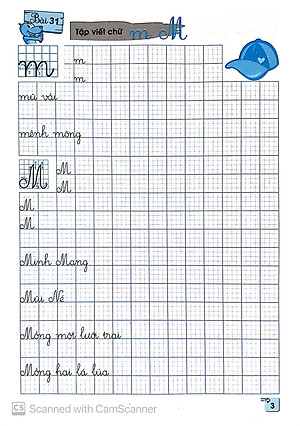 Bài 31
Tập viết chữ m M
m
m
m
mũ vải
mênh mông
M
M
M
M
M
Minh Mạng
Mũi Né
Mồng một lưỡi trai
Mồng hai lá lúa
3
CS Scanned with CamScanner